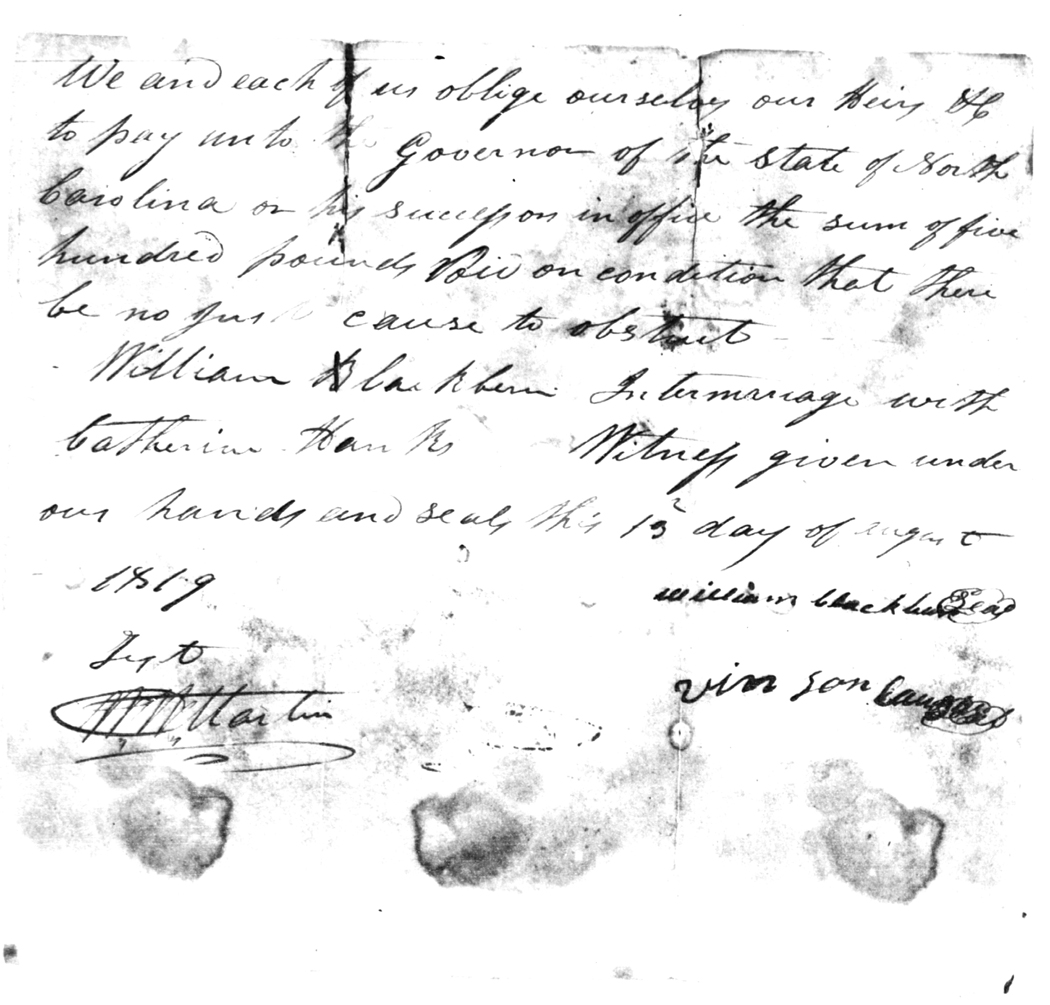 We and each of us oblige ourselves our Heirs &C
to pay unto the Governor of the State of North
Carolina or his successor in office the sum of five
hundred pounds Bid on condition that there
be no just cause to obstruct
William Blackbern Intermrriage with
Catherine Hanks Witness given under
our hands and seals this 13 day of august
1819
william blackburn Seal
Test
vinson Seal
Martin